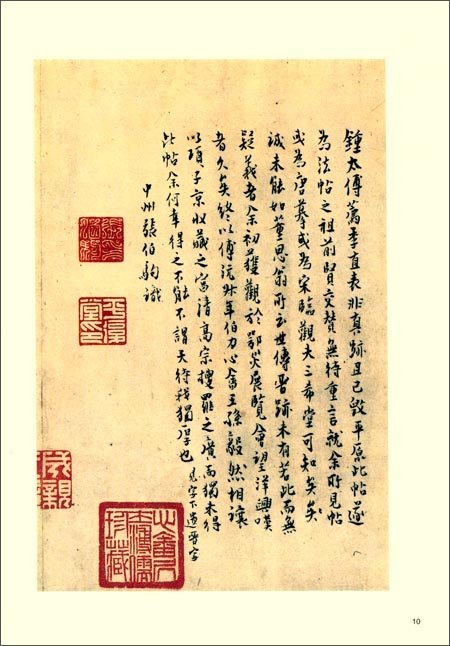 鍾太傅薦季直表非真跡且已毀平原此帖遂
為法帖之祖前賢交贊無待重言就余所見帖
或為唐摹或為宋臨觀夫三希堂可知矣矣
誠未能如董思翁所云世傳晉跡未有若此而無
疑義者余初獲觀於鄂災展覽會望洋興嘆
者久矣終以傅沅叔年伯力心畬王孫毅然相讓
以項子京收藏之富清高宗搜羅之廣而獨未得
此帖余何幸得之不能不謂天待我獨厚也 見字下遺晉字
中州張伯駒識
平原堂印
成親
10